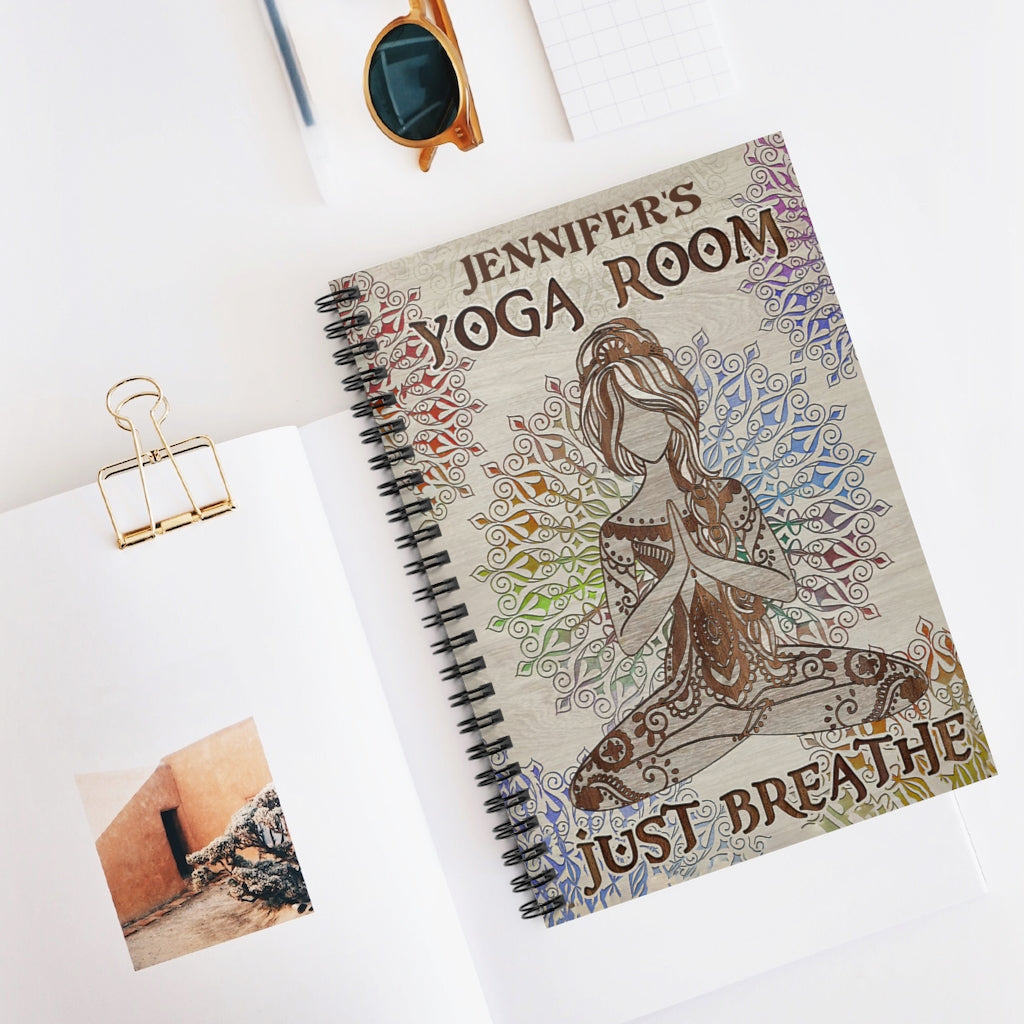 JENNIFER'S
YOGA ROOM
JUST BREATHE